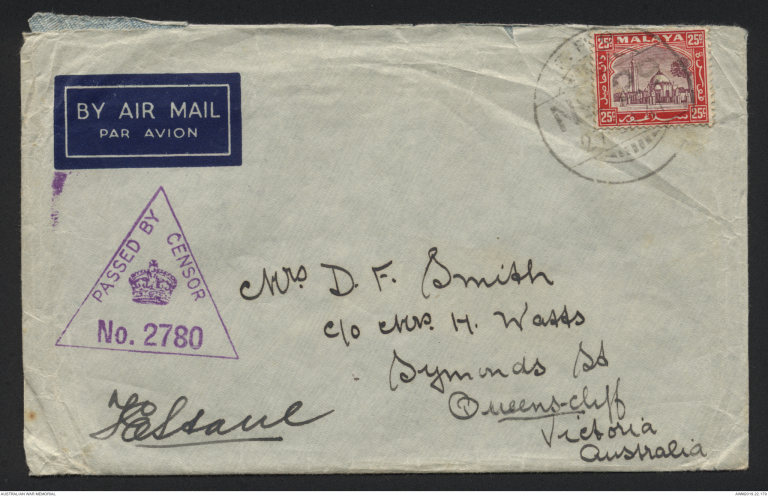 BY AIR MAIL
PAR AVION
25¢ MALAYA 25¢
25¢ سلاڠور 25¢
PASSED BY CENSOR
No. 2780
Mrs D. F. Smith
c/o Mrs. H. Watts
Symonds St
Queenscliff
Victoria
Australia
AUSTRALIAN WAR MEMORIAL